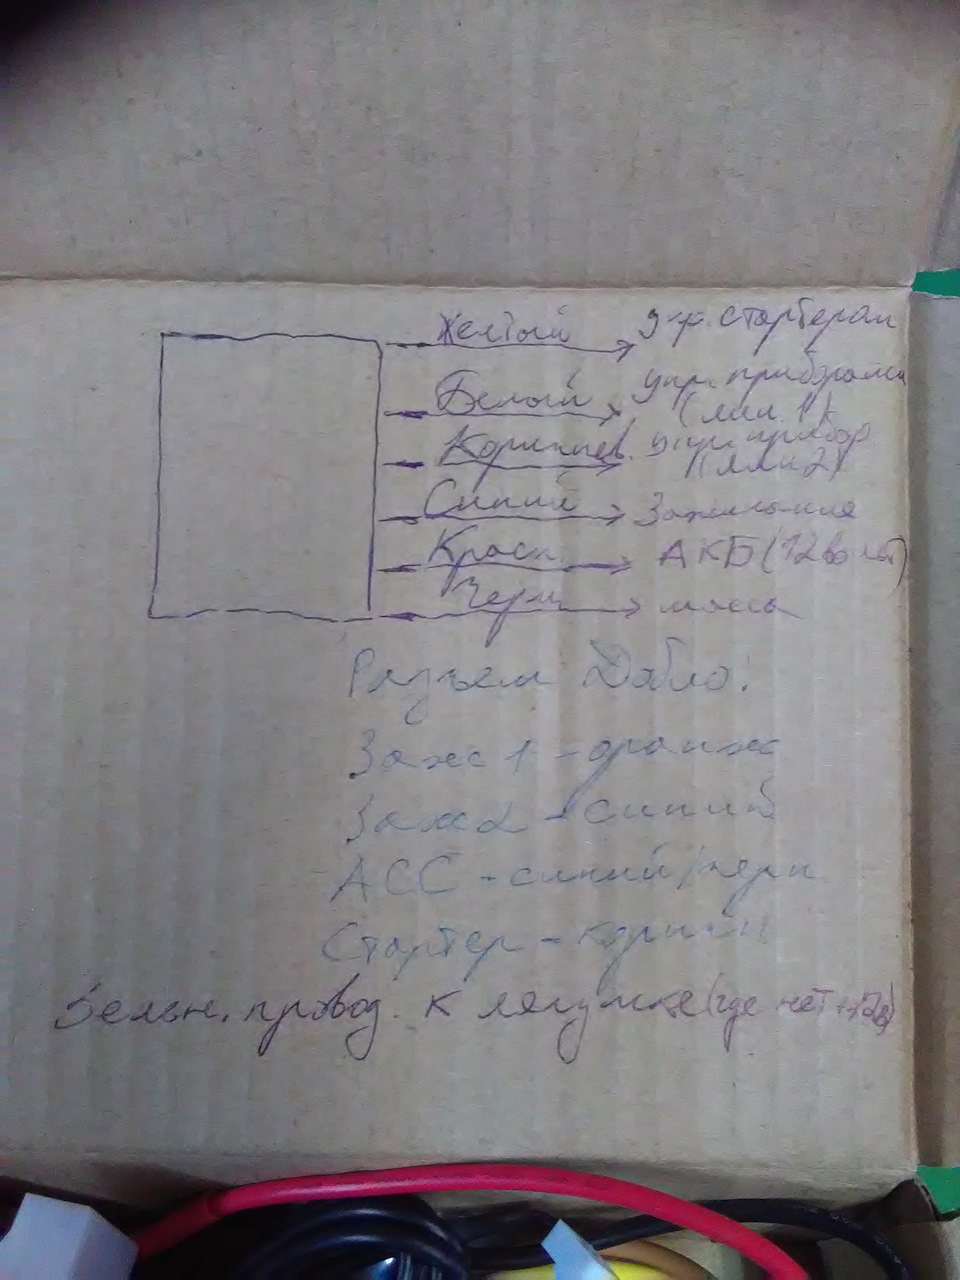 Желтый упр. стартером
Белый упр. приборами
(лин 1)
Коричнев. упр. прибор
(лин 2)
Синий Зажигание
Красн. АКБ (12 вольт)
Черн масса
Разъем Добло:
Заж 1 - оранж
Заж 2 - синий
АСС - синий/черн
Стартер - коричн
Зелен. провод. к лягушке (где нет +12в)